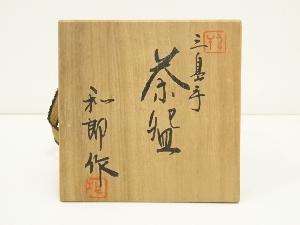 三島手
茶盌
和郎作